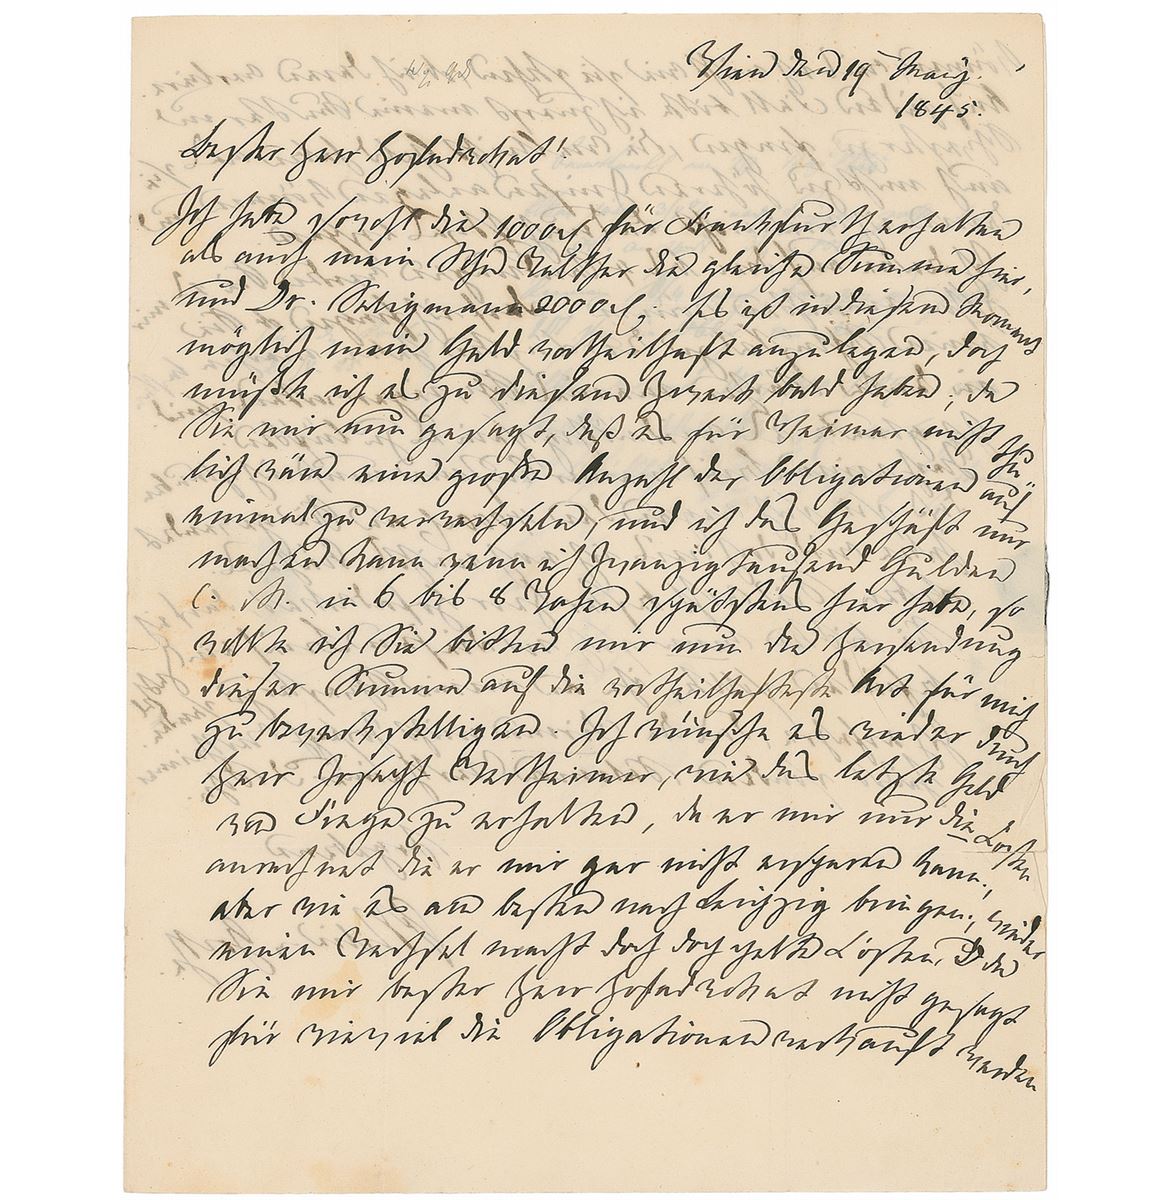 Wien den 19 May.
1845.
Bester Herr Hofadvokat!
Ich habe sowohl die 1000 fl für Frankfurth erhalten
als auch mein Sohn Walther die gleiche Summe hier,
und Dr. Seligmann 2000 fl. Es ist in diesem Moment
möglich mein Geld vortheilhaft anzulegen, doch
müßte ich es zu diesem Zweck bald haben; da
Sie mir nun gesagt, daß es für Weimar nicht thu-
lich wäre eine große Anzahl der Obligationen auf
einmal zu verwechseln, und ich das Geschäft nur
machen kann wenn ich zwanzigtausend Gulden
C. M. in 6 bis 8 Tagen spätstens hier habe, so
wollte ich Sie bitten mir nun die Versendung
dieser Summe auf die vortheilhafteste Art für mich
zu bewerkstelligen. Ich wünsche es wieder durch
Herr Joseph Wertheimer, wie das letzte Geld
von Frege zu erhalten, da er mir nur die Kosten
anrechnet die er mir gar nicht ersparen kann;
aber wie es am besten nach Leipzig bringen; wieder
einen Wechsel macht doch doppelte Kosten. Da
Sie mir bester Herr Hofadvokat nicht gesagt
für wieviel die Obligationen verkauft werden